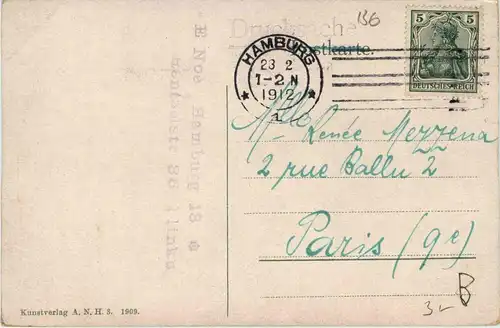 136
Drucksache
Postkarte.
5 5
DEUTSCHES REICH
HAMBURG
23 2
1-2 N
1912
* 1 *
Mlle Renée Mezzena
2 rue Ballu 2
Paris (9e)
* E Noe Hamburg 13 *
36 I links
Kunstverlag A. N. H. S. 1909.
3- B